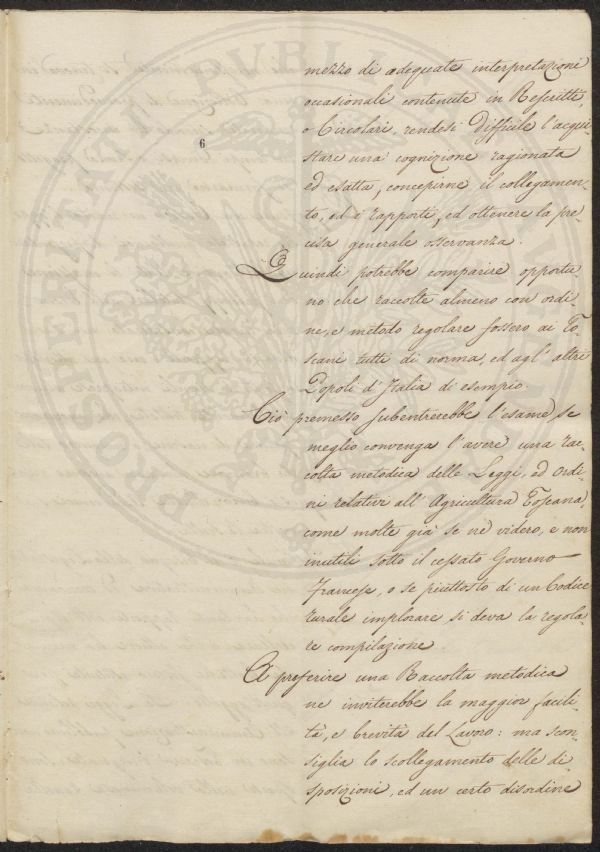 mezzo di adequate interpretazioni
occasionali contenute in Rescritti,
o Circolari, rendesi difficile l'acqui-
6
stare una cognizione ragionata
ed esatta, concepirne il collegamen-
to, ed i rapporti, ed ottenere la pre-
cisa generale osservanza.
Quindi potrebbe comparire opportu-
no che raccolte almeno con ordi-
ne, e metodo regolare fossero ai To-
scani tutti di norma, ed agl'altri
Popoli d'Italia di esempio.
Ciò premesso subentrerebbe l'esame, se
meglio convenga l'avere una rac-
colta metodica delle Leggi, ed Ordi-
ni relativi all'Agricultura Toscana
come molte già se ne videro, e non
inutili sotto il cessato Governo
Francese, o se piuttosto di un Codice
rurale implorare si deva la regola-
re compilazione.
A preferire una Raccolta metodica
ne inviterebbe la maggior facili-
tà, e brevità del Lavoro: ma scon-
siglia lo scollegamento delle di-
sposizioni, ed un certo disordine
PROSPERITATI PUBLICAE AUGENDAE